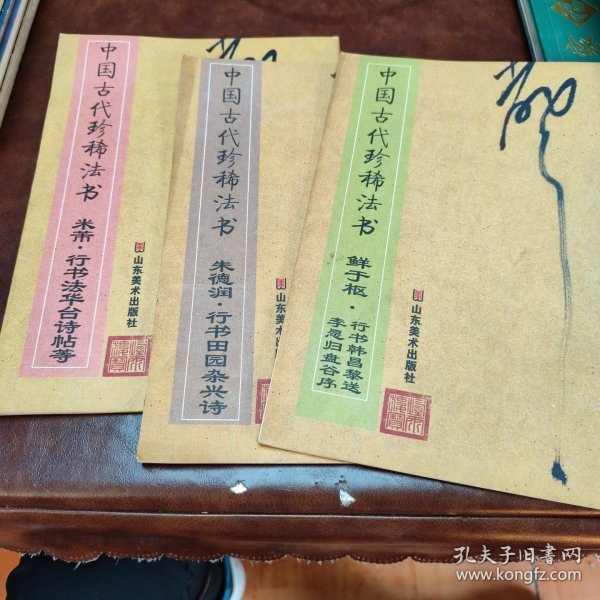 中国古代珍稀法书
米芾·行书法华台诗帖等
山东美术出版社
中国古代珍稀法书
朱德润·行书田园杂兴诗
山东美术出版社
中国古代珍稀法书
鲜于枢·行书韩昌黎送
李愿归盘谷序
山东美术出版社
孔夫子旧书网
www.kongfz.com